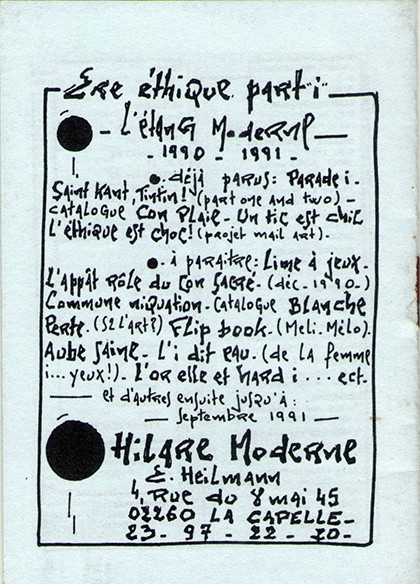 Ere éthique part "i"
- L'étanG Moderne -
- 1990 - 1991 -
●. déjà parus : Parade i -
Saint Kant, Tintin ! (part one and two) -
catalogue Con Plair - Un tic est chic
L'éthique est choc ! (projet mail art) .
●. à paraître : Lime à jeux -
L'appât Rôle du Con Sacré - (déc - 1990 -)
Commune niquation - Catalogue Blanche
Perte - (S2 L'art ?) Flip book - (Meli - Mélo) .
Aube Saine - L'i dit eau - (de la femme
i... yeux !) - L'or elle et hard i ... ect -
et d'autres ensuite jusqu'à :
— septembre 1991 —
Hilare Moderne
E. Heilmann
4, Rue du 8 mai 45
02260 LA CAPELLE -
23 - 97 - 22 - 20 -